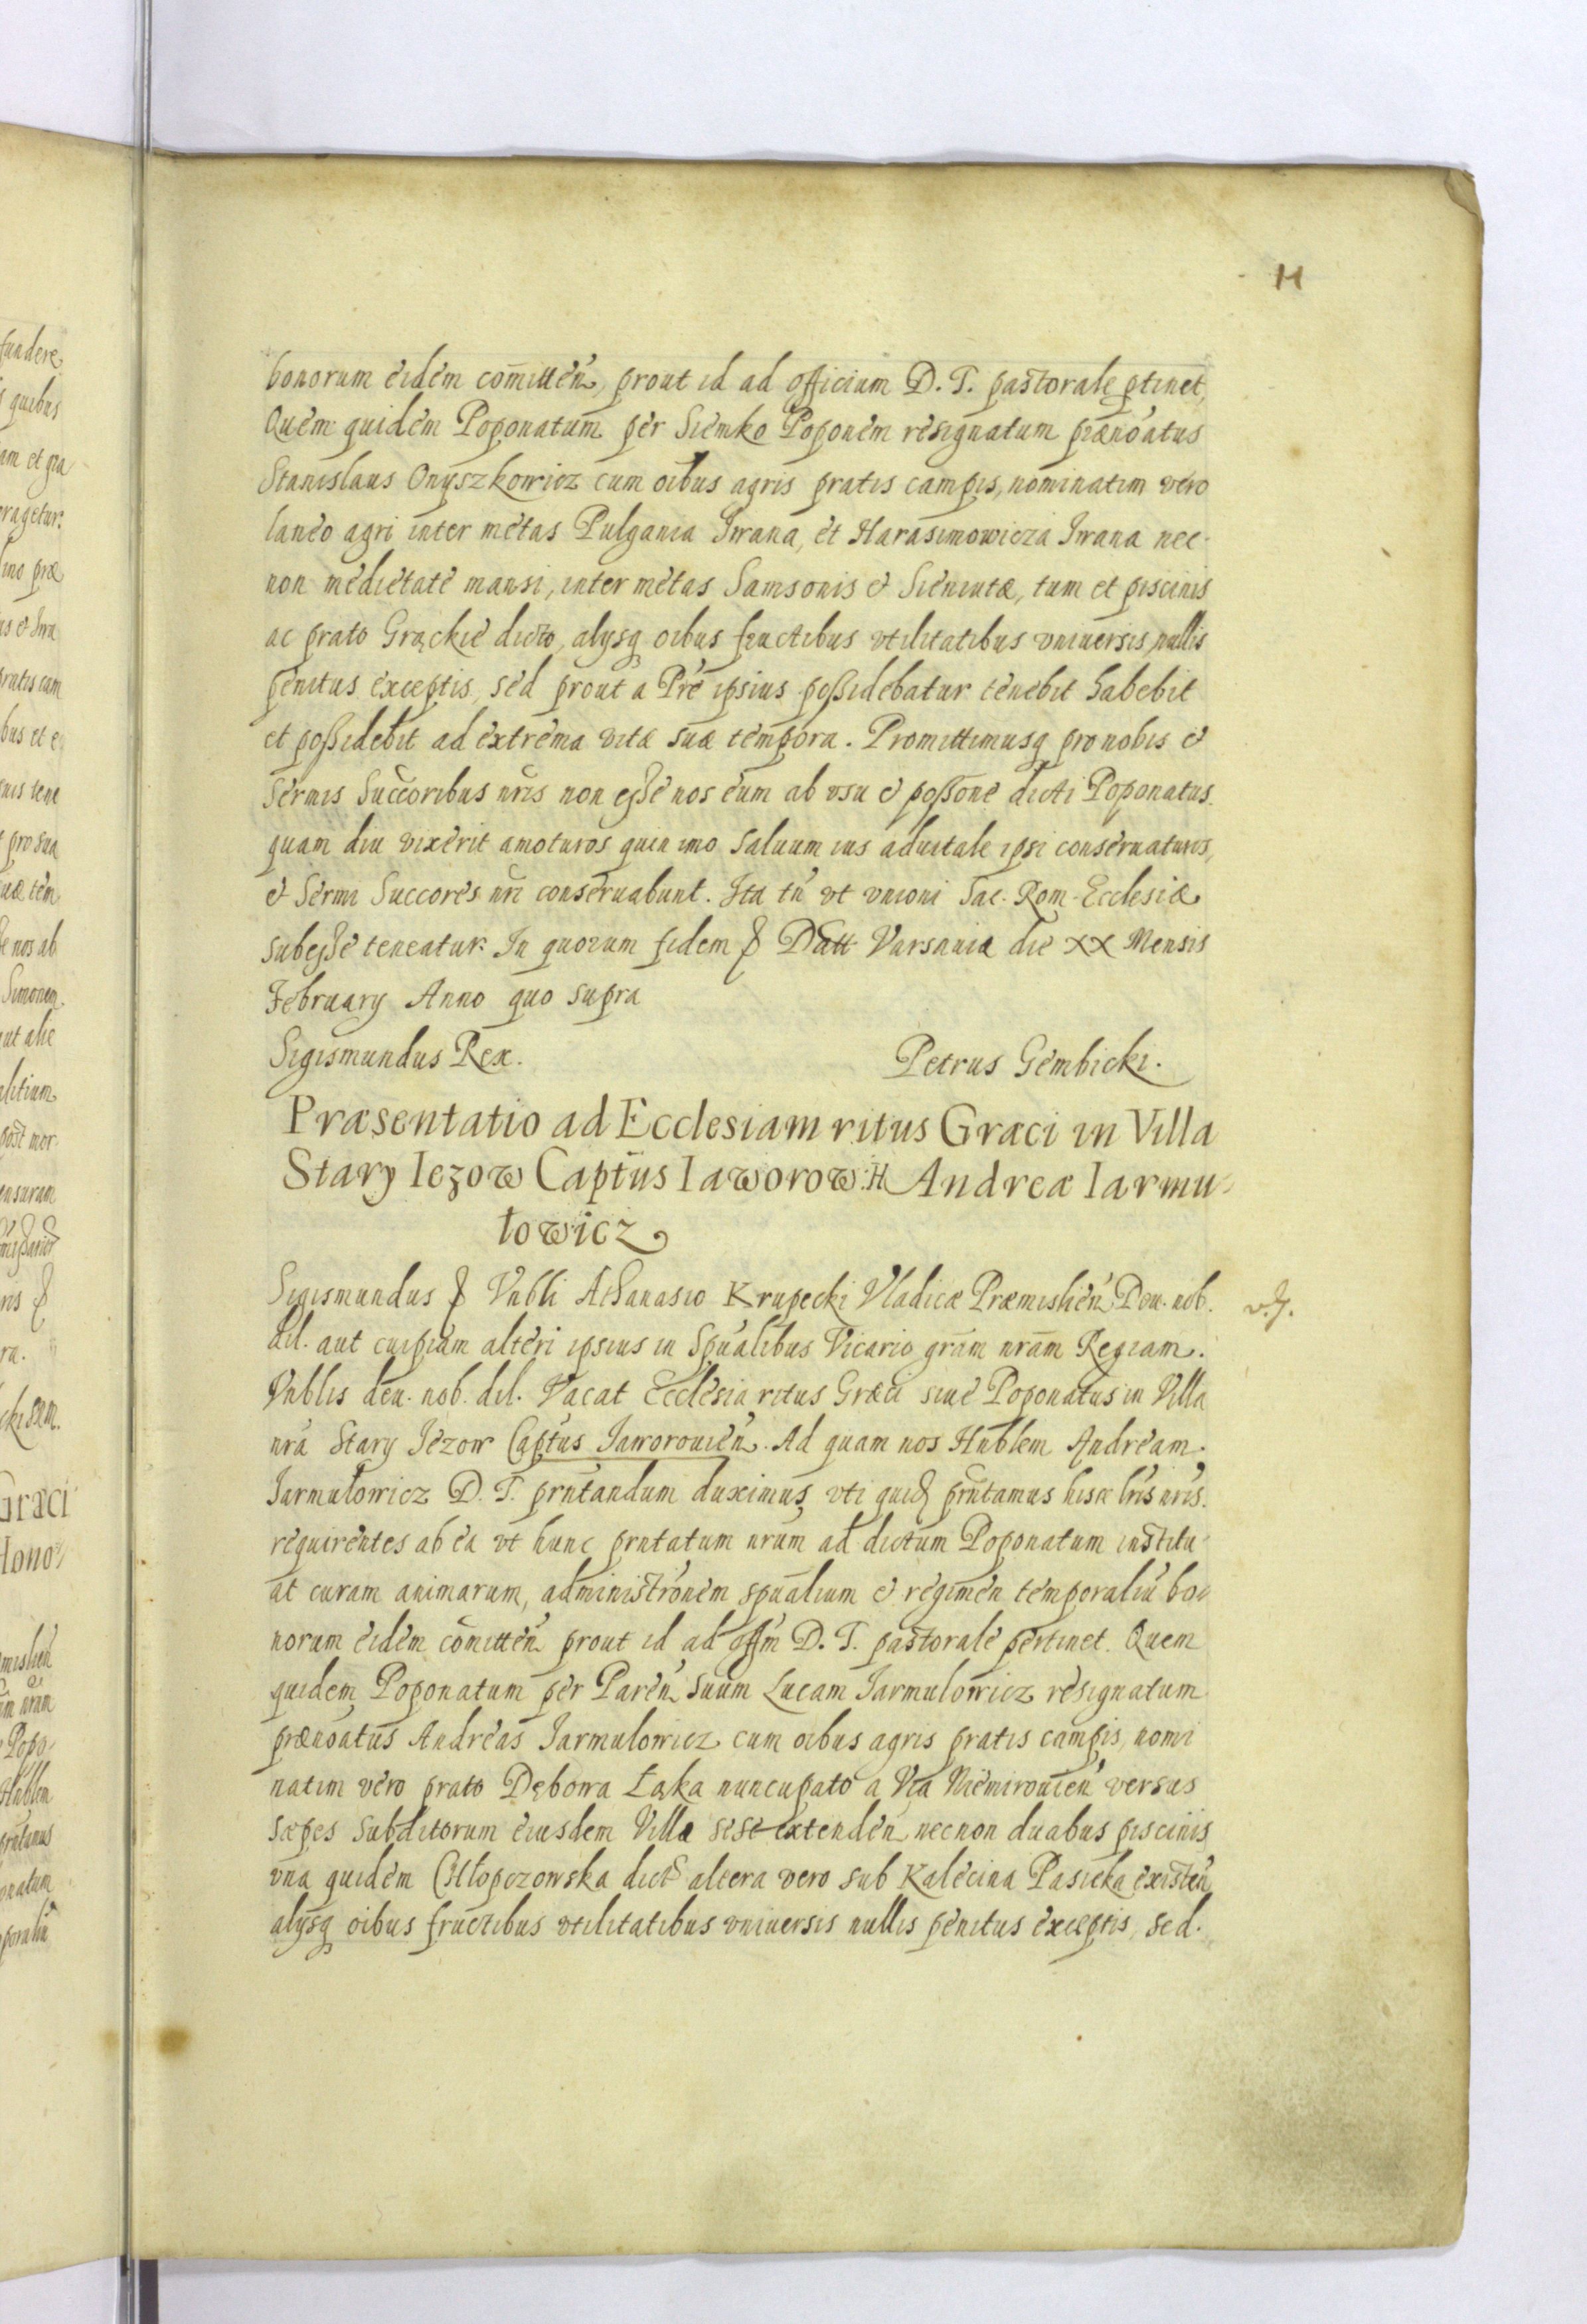 H
bonorum eidem com̄itteń, prout id ad officium D. T. pastorale ptinet,
Quem quidem Poponatum per Siemko Poponem resignatum prænoatus
Stanislaus Onyszkowicz cum oibus agris pratis campis, nominatim vero
laneo agri inter metas Pulgania Iwana, et Harasimowicza Iwana nec
non medietate mansi, inter metas Samsonis & Sieniutæ, tum et piscinis
ac prato Grąckie dicto, alysq oibus fructibus vtilitatibus vniuersis, nullis
penitus exceptis, sed prout a Pre ipsius possidebatur tenebit habebit
et possidebit ad extrema vitæ suæ tempora. Promittimusq pro nobis &
Sermis Succoribus nris non esse nos eum ab vsu & possone dicti Poponatus
quam diu vixerit amoturos quin imo saluum ius aduitale ipsi conseruaturos,
& Sermi Succores nri conseruabunt. Ita tn̄ vt vnioni Sac. Rom. Ecclesiæ
subesse teneatur. In quorum fidem & Datt Varsauiæ die XX Mensis
February Anno quo supra
Sigismundus Rex. Petrus Gembicki.
Præsentatio ad Ecclesiam ritus Græci in Villa
Stary Iezow Captūs Iaworow: H Andreæ Iarmu
łowicz
Sigismundus & Vnbli Athanasio Krupecki Vladicæ Præmislień Deu. nob.
dil. aut cuipiam alteri ipsius in Spūalibus Vicario grām nrām Regiam. v. g.
Vnblis deu. nob. dil. Vacat Ecclesia ritus Græci siue Poponatus in Villa
nrā Stary Iezow Captus Iaworouień. Ad quam nos Hnblem Andream
Iarmułowicz D. T. prn̄tandum duximus, vti quidē prn̄tamus hisce lris nris.
requirentes ab ea vt hunc prntatum nrum ad dictum Poponatum institu
at curam animarum, administrōnem spūalium & regimen temporaliū bo
norum eidem cōmitteń prout id ad offm̄ D. T. pastorale pertinet. Quem
quidem Poponatum per Pareń suum Lucam Iarmulowicz resignatum
prænoatus Andreas Iarmulowicz cum oibus agris pratis campis, nomi
natim vero prato Dębowa Łąka nuncupato a Via Niemirouień versus
sæpes subditorum eiusdem Villæ sese extendeń necnon duabus piscinis
vna quidem Chłopczowska dictā altera vero sub Kalecina Pasieka existeń
alysq oibus fructibus vtilitatibus vniuersis nullis penitus exceptis, sed